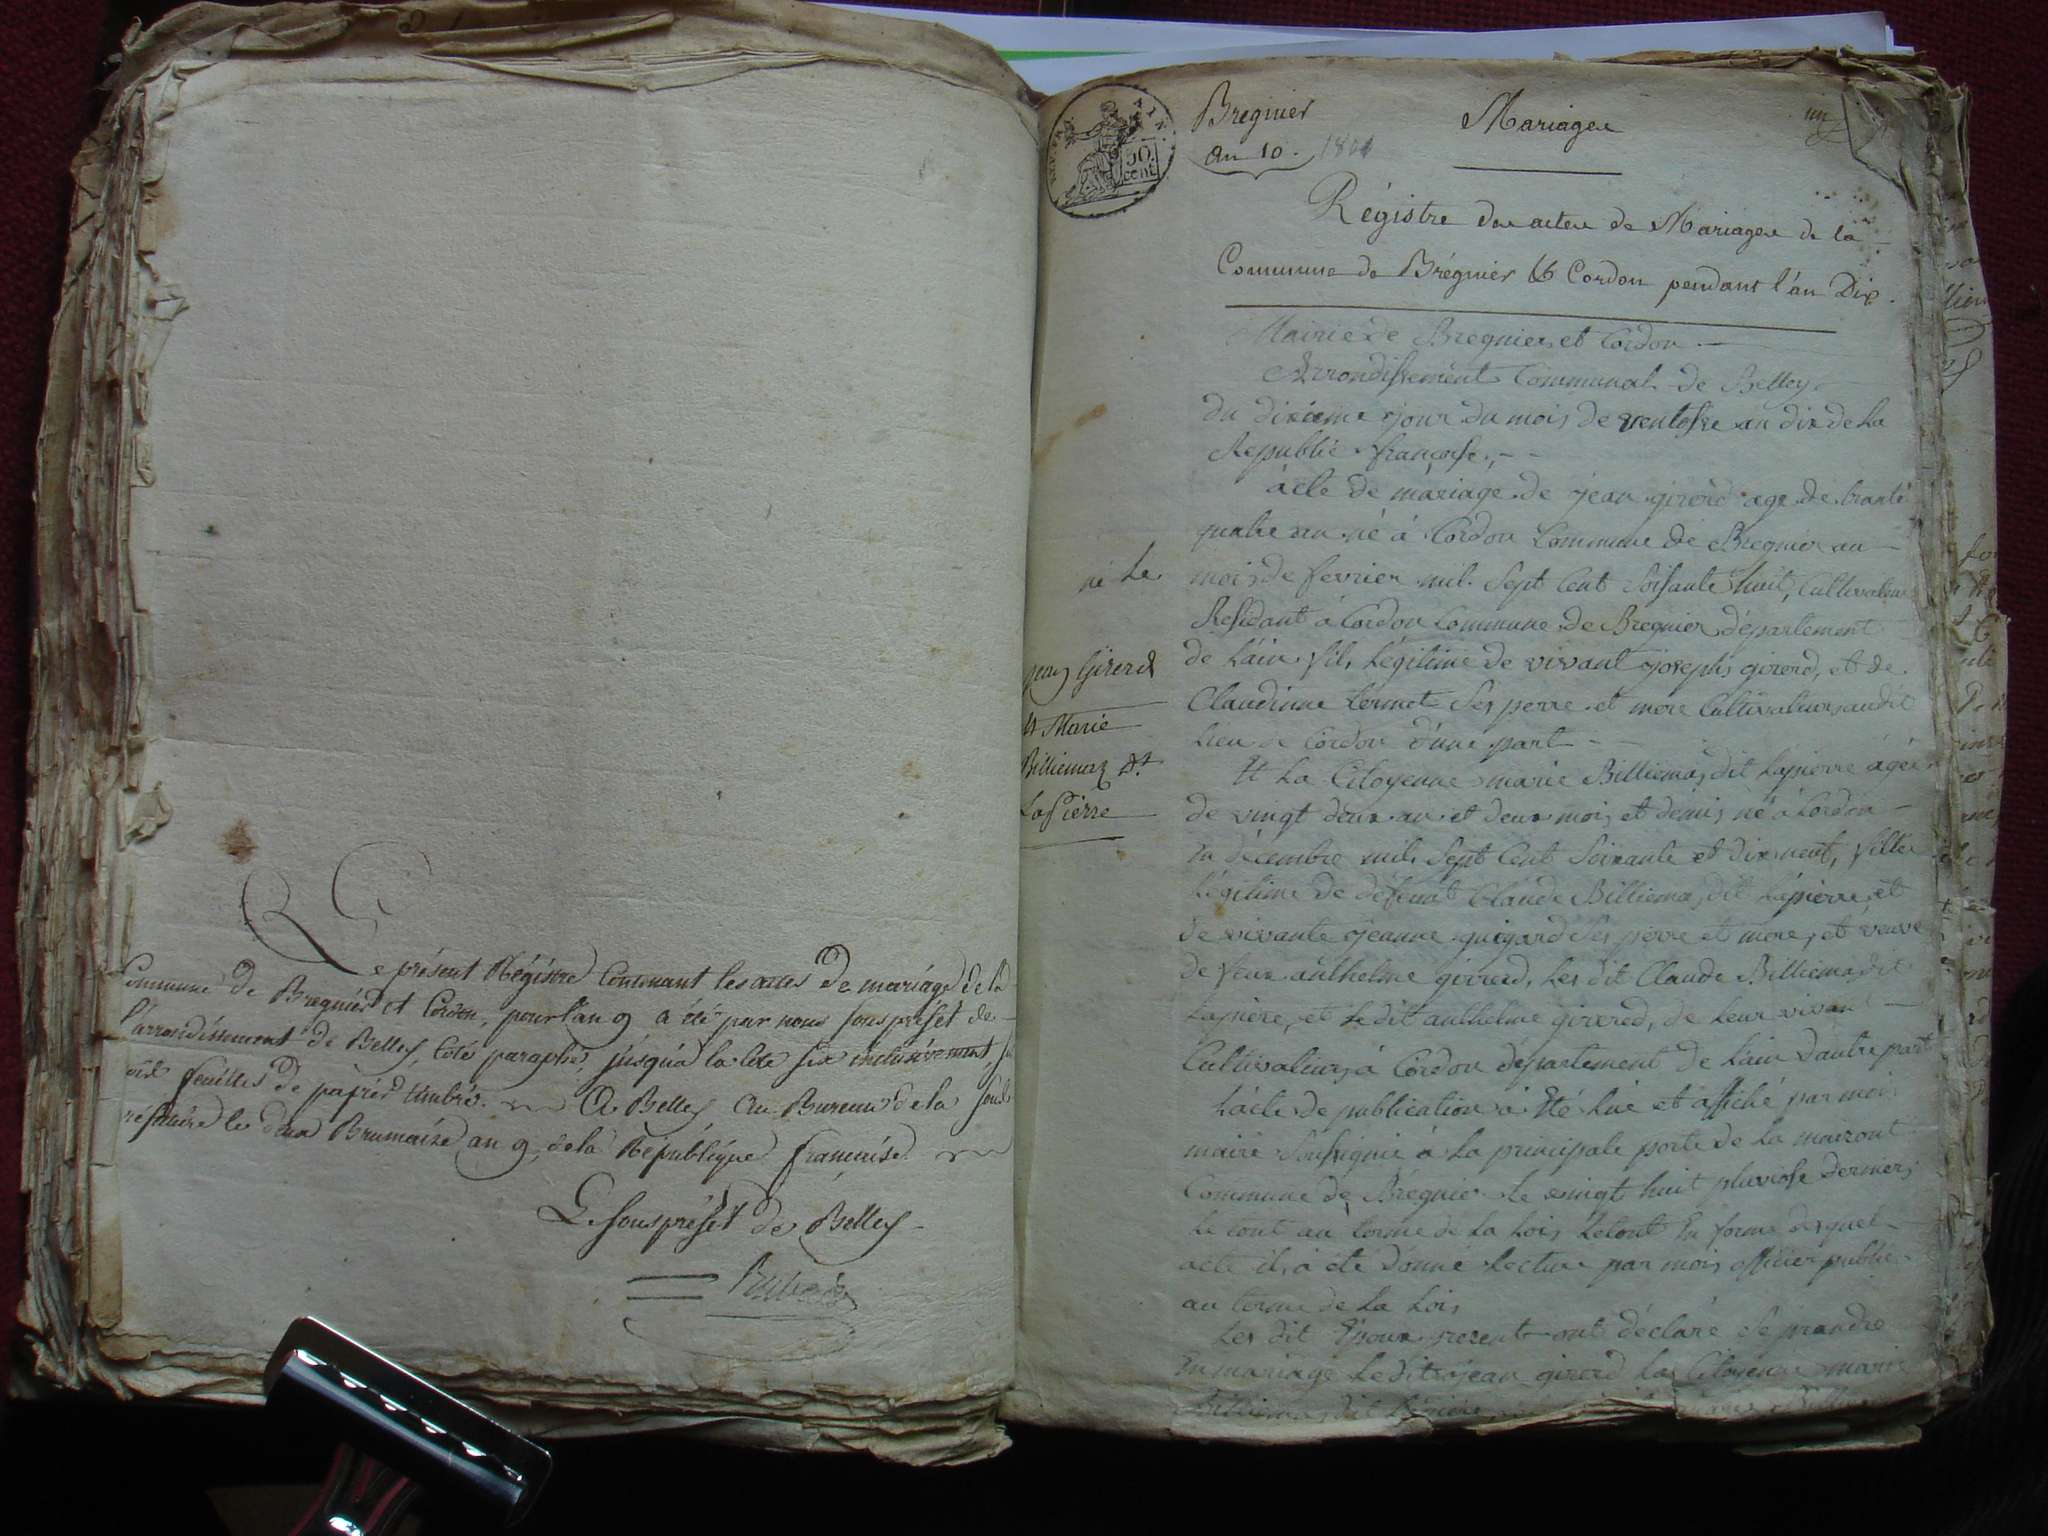 Le présent Régistre Contenant les actes De mariage de la
Commune de Bregnier et Cordon, pour l'an 9 a été par nous sous préfet de
l'arrondissement de Belley, coté paraphé, jusqu'à la cote six inclusivement, sur
six feuilles de papier timbré. A Belley Au Bureau de la sous
préfecture le deux Brumaire an 9 de la République française
Le sous préfet de Belley
AIN
50
cent
Bregnier
Mariages
an 10. 1801
Régistre des actes de Mariages de la
Commune de Brégnier & Cordon pendant l'an Dix.
Mairie de Bregnier et Cordon.
Arrondissement Communal de Belley
du dixieme jour du mois de ventosse an dix de La
Republic francaise.
acte de mariage de jean girerd age de trante
quatre an né à Cordon Commune de Bregnier au
né Le
mois de fevrier mil Sept Cent Soisante huit, Cultivateur
Residant à Cordon Commune de Bregnier département
de L'ain fils Légitime de vivant joseph girerd, et de
Claudinne Lermet Ses perre et mere Cultivateurs audit
Lieu de Cordon d'une part
Jean Girerd
& Marie
Billiemaz dt
LaPierre
Et La Citoyenne marie Billiemas dit Lapierre agée
de vingt deux an et deux mois et demis né à Cordon
En décembre mil Sept Cent Soixante et dix neuf, fille
Légitime de défunt Claude Billiemas dit Lapierre et
de vivante jeanne guigard Ses perre et mere, et veuve
de feux anthelme girerd, Les dit Claude Billiemas dit
Lapiere, et Ledit anthelme girerd, de Leur vivant
Cultivateurs à Cordon département de L'ain d'autre part
L'acte de publication à Eté Lüe et affiché par moi
maire Soussignié à La principale porte de La
Commune de Brégnier Le vingt huit pluviose dernier
Le tout au terme de La Lois Letout En forme desquel
acte il à été donné Lecture par mois officier public
au terme de La Lois
Les dit Epoux present ont déclaré Se prandre
En mariage Ledit jean girerd La Citoyenne marie
Billiemas dit Lapiere